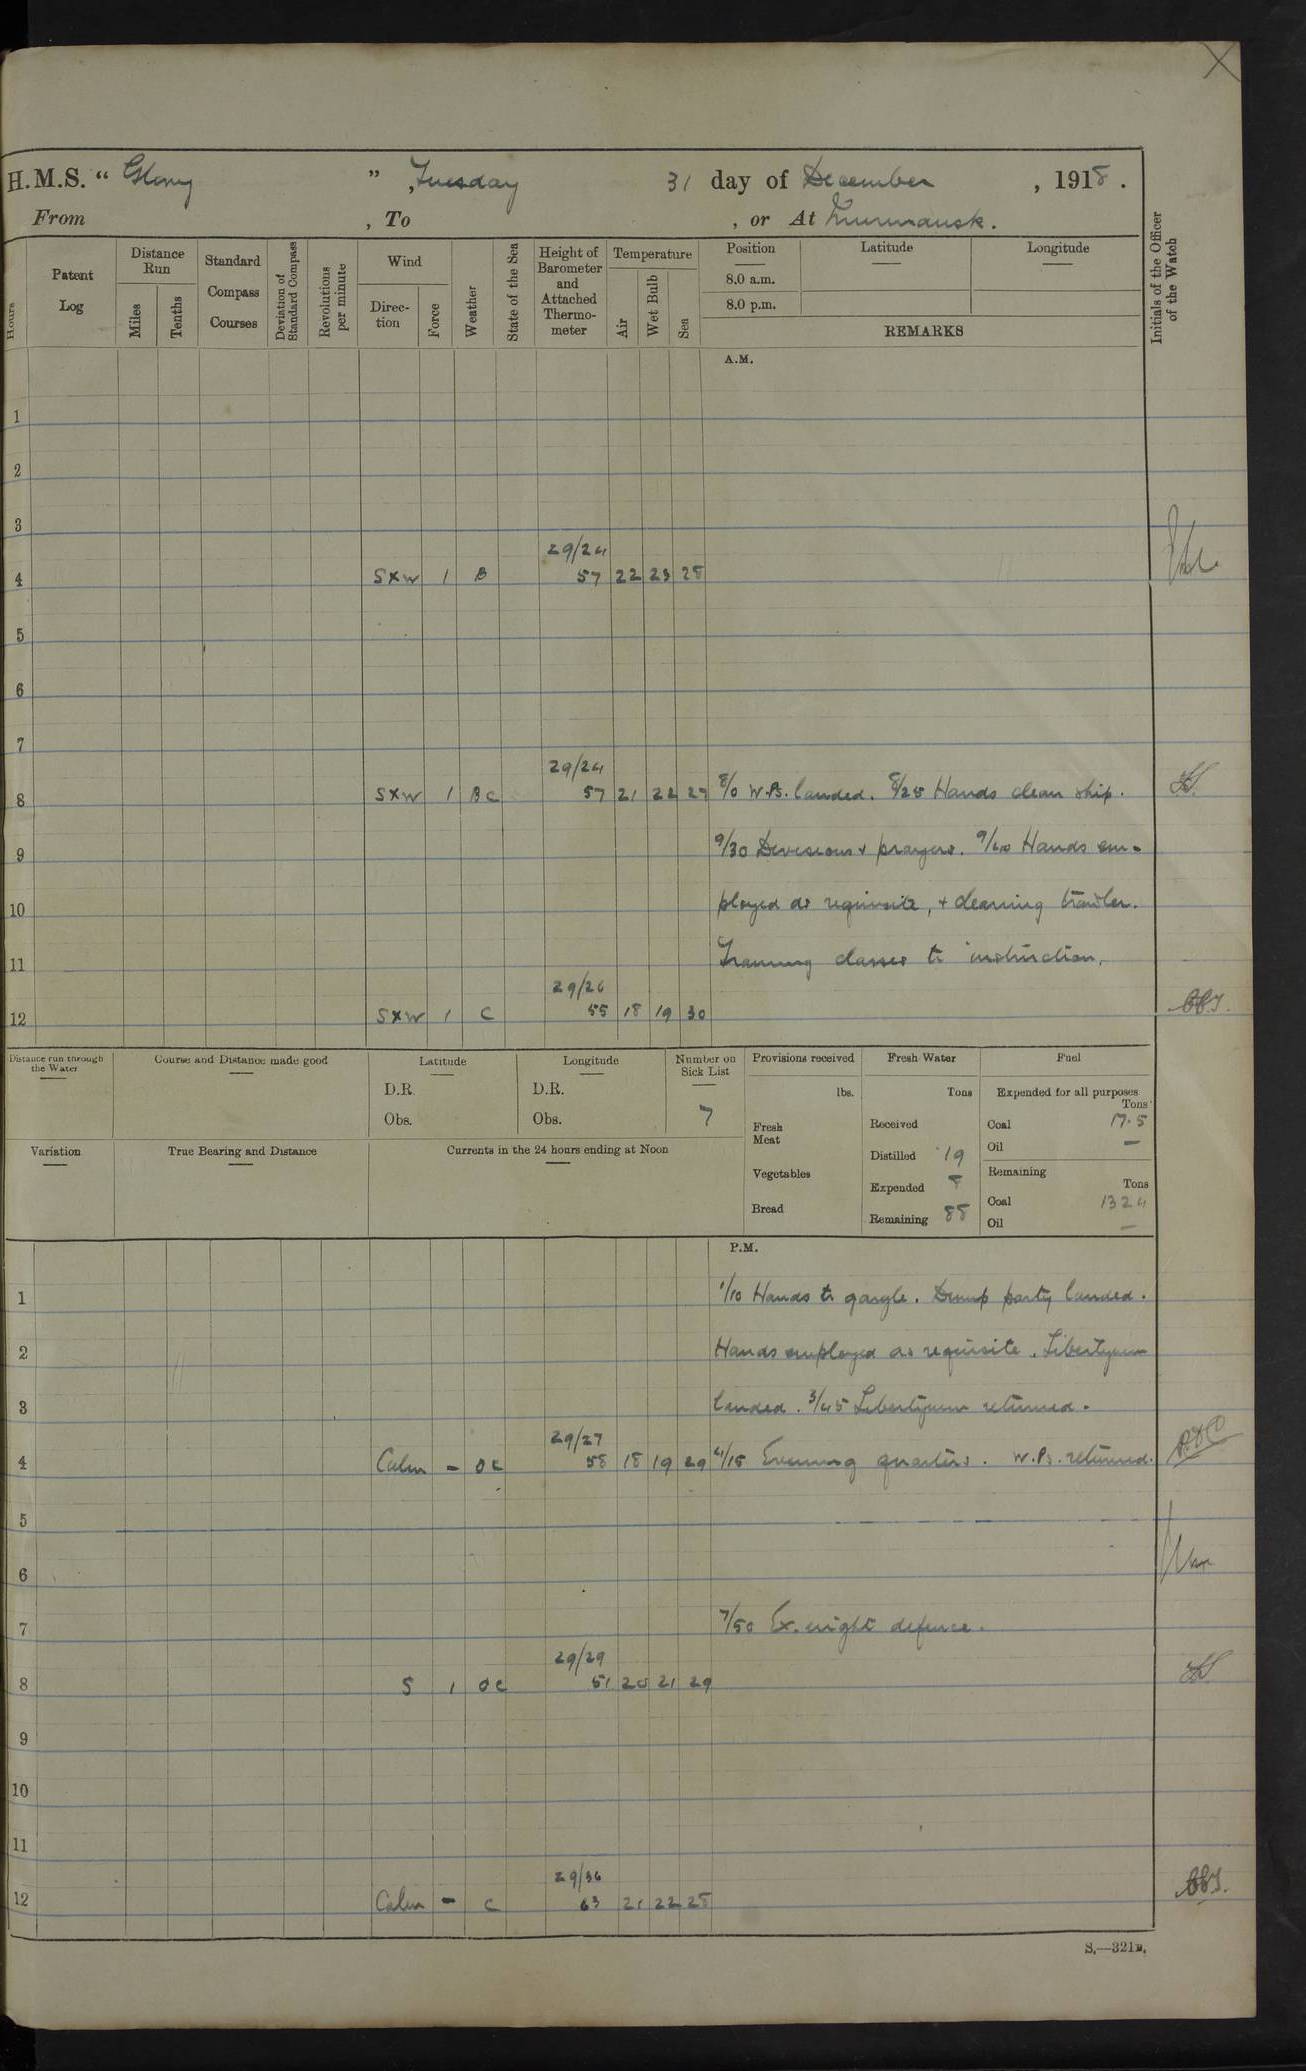 H.M.S. “ Glory ” , Tuesday 31 day of December , 1918 .
From , To , or At Murmansk .
Hours
Patent Log
Distance Run
Miles
Tenths
Standard Compass Courses
Deviation of Standard Compass
Revolutions per minute
Wind
Direc-tion
Force
Weather
State of the Sea
Height of Barometer and Attached Thermo-meter
Temperature
Air
Wet Bulb
Sea
Position
8.0 a.m.
8.0 p.m.
Latitude
Longitude
REMARKS
Initials of the Officer of the Watch
A.M.
1
2
3
29/24
4 SXW 1 B 57 22 23 28
5
6
7
29/24
8 SXW 1 BC 57 21 22 27 8/0 W.Ps. landed. 8/25 Hands clean ship.
9 9/30 Divisions & prayers. 9/40 Hands em-
10 ployed as requisite, & cleaning trawler.
11 Training classes to instruction.
29/26
12 SXW 1 C 55 18 19 30 BBJ.
Distance run through the Water
Course and Distance made good
Latitude
D.R.
Obs.
Longitude
D.R.
Obs.
Number on Sick List
7
Provisions received
lbs.
Fresh Meat
Vegetables
Bread
Fresh Water
Tons
Received
Distilled 19
Expended 8
Remaining 88
Fuel
Expended for all purposes
Tons
Coal 17.5
Oil —
Remaining
Tons
Coal 1324
Oil —
Variation
True Bearing and Distance
Currents in the 24 hours ending at Noon
P.M.
1 1/10 Hands to gargle. Dump party landed.
2 Hands employed as requisite. Libertymen
3 landed. 3/45 Libertymen returned.
29/27
4 Calm - OC 58 18 19 29 4/15 Evening quarters. W.Ps. returned.
5
6
7 7/50 Ex. night defence.
29/29
8 S 1 OC 51 20 21 29
9
10
11
29/36
12 Calm - C 63 21 22 28 BBJ.
S.—321B.